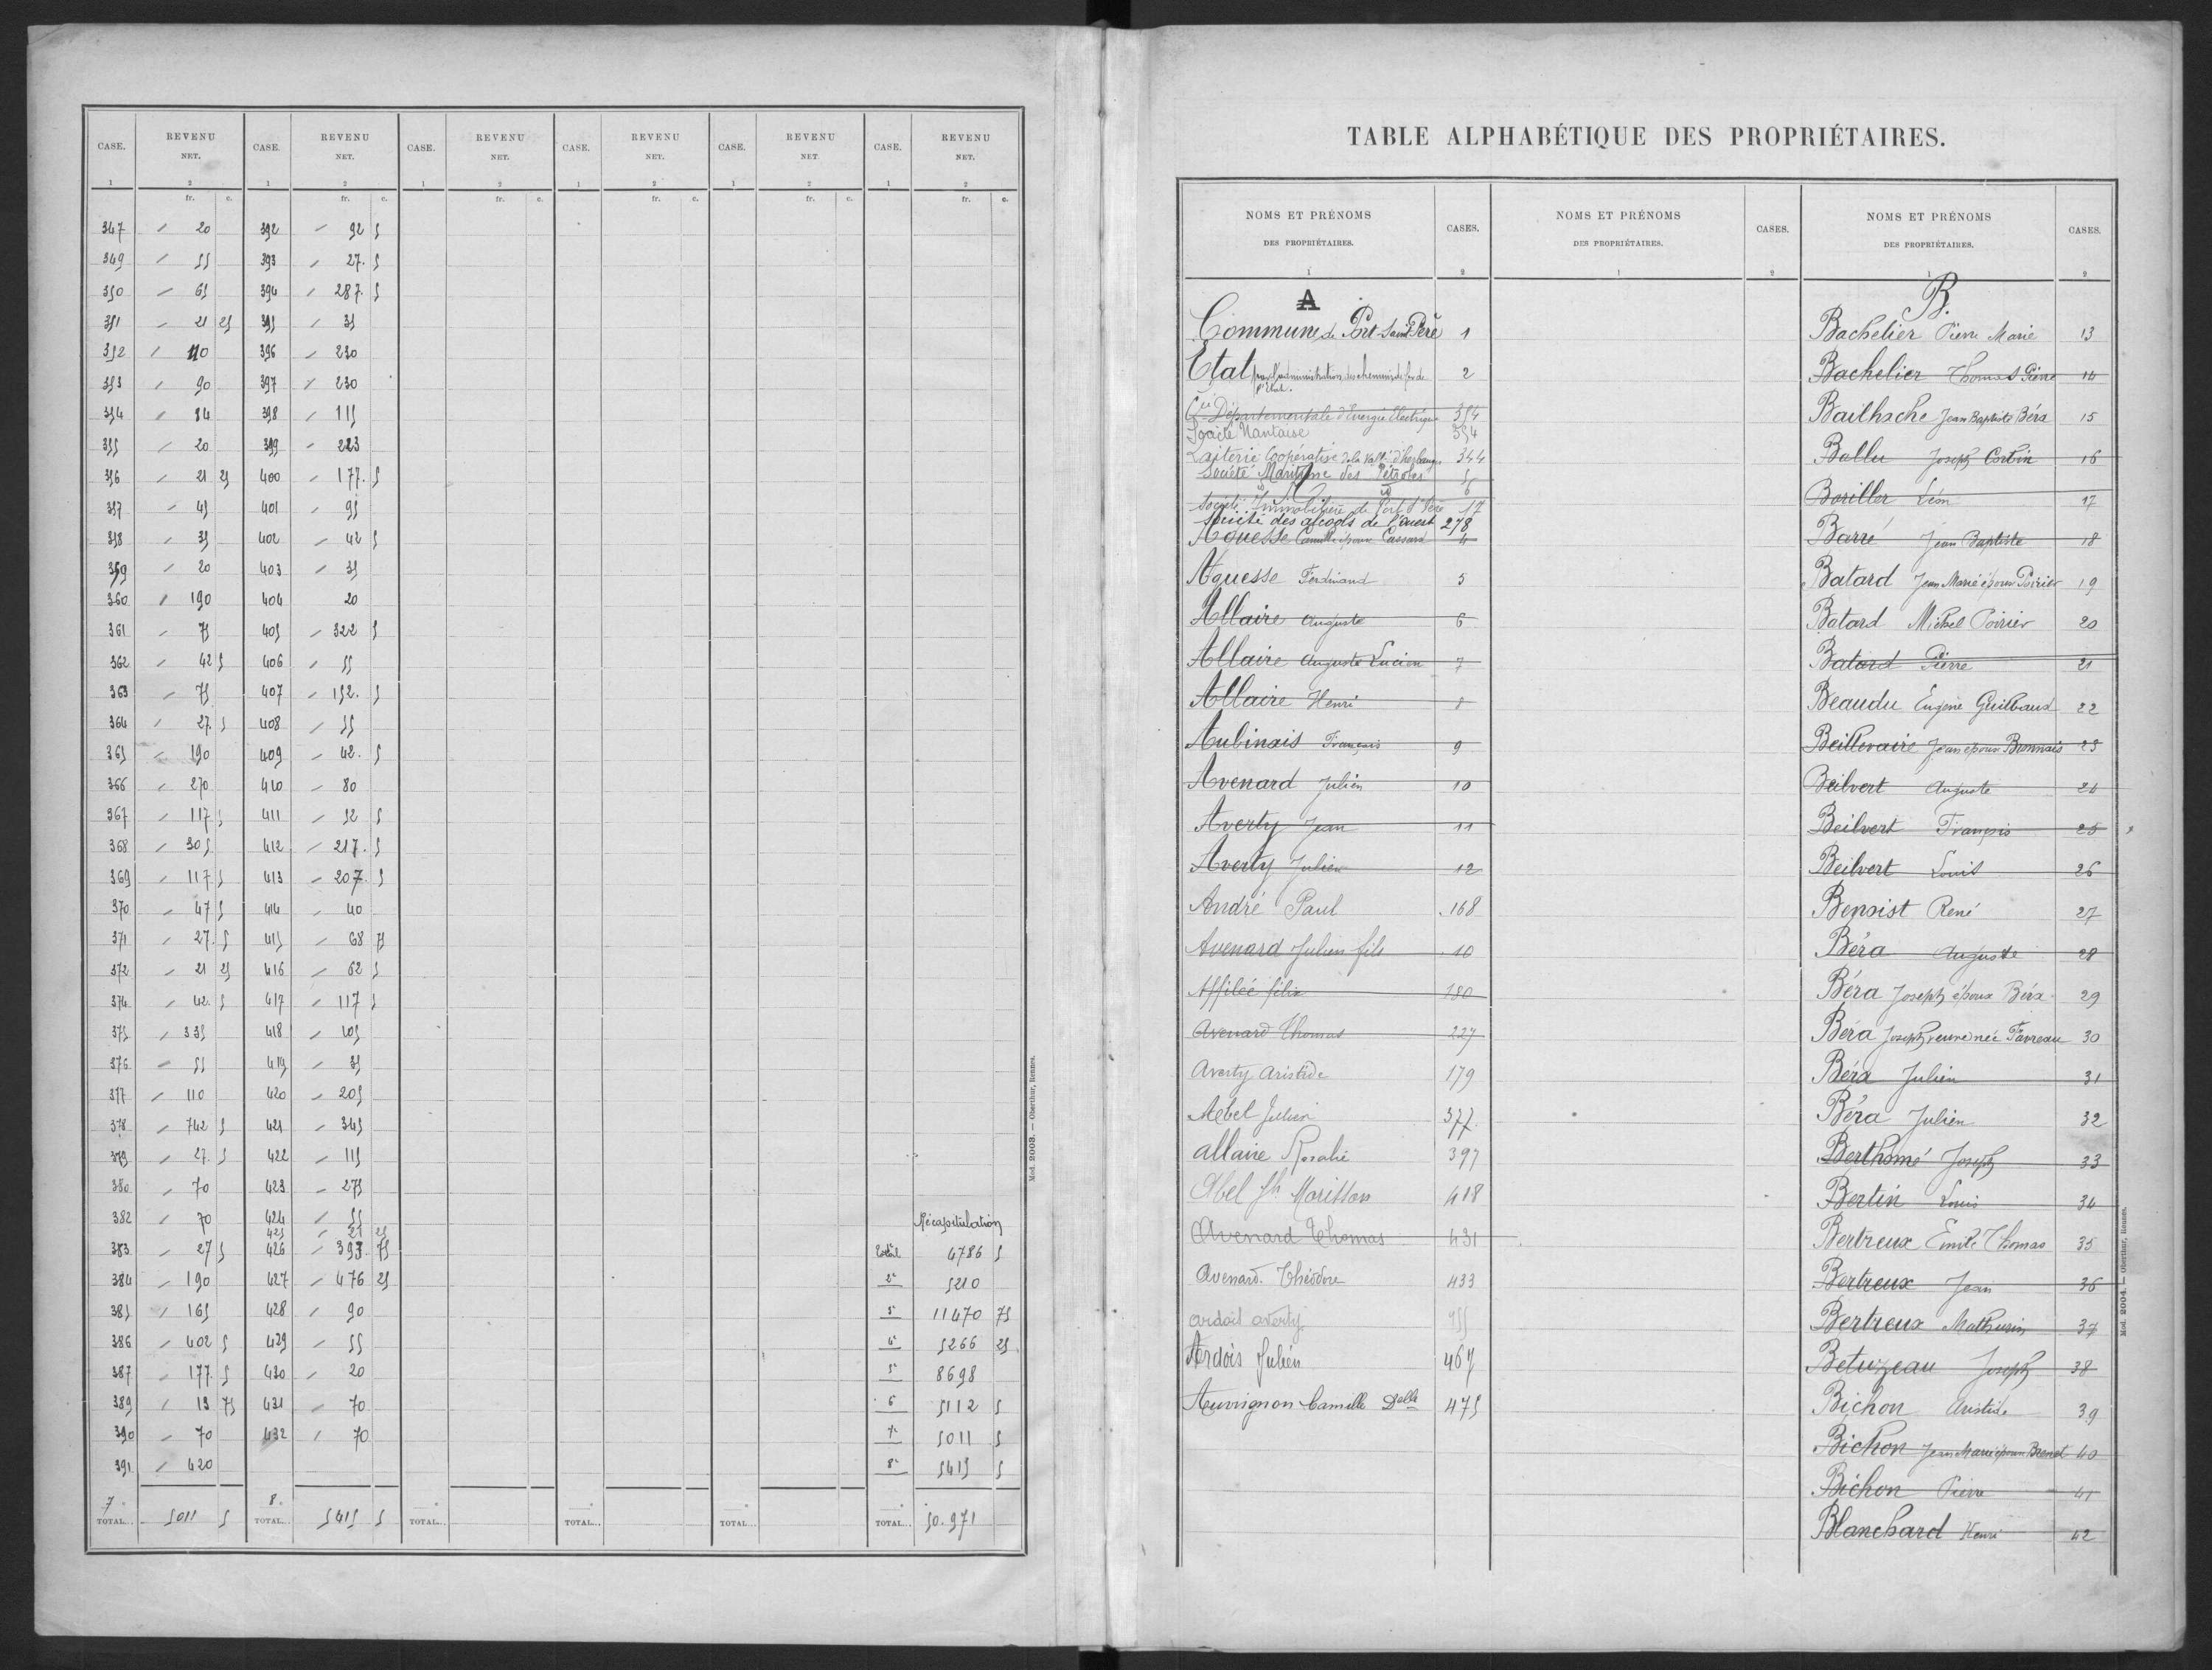 CASE. REVENU NET. CASE. REVENU NET. CASE. REVENU NET. CASE. REVENU NET. CASE. REVENU NET. CASE. REVENU NET.
1 2 1 2 1 2 1 2 1 2 1 2
fr. c. fr. c. fr. c. fr. c. fr. c. fr. c.
347 20 392 92 5
349 55 393 27. 5
350 65 394 287. 5
351 21 25 395 35
352 110 396 230
353 90 397 230
354 84 398 115
355 20 399 223
356 21 25 400 177. 5
357 45 401 95
358 35 402 42 5
359 20 403 35
360 190 404 20
361 75 405 322 5
362 42 5 406 55
363 75 407 152. 5
364 27. 5 408 55
365 190 409 42. 5
366 270 410 80
367 117 5 411 52 5
368 305 412 217. 5
369 117 5 413 207. 5
370 47 5 414 40
371 27. 5 415 68 75
372 21 25 416 62 5
374 42. 5 417 117 5
375 335 418 105
376 55 419 35
377 110 420 205
378 742 5 421 345
379 27. 5 422 115
380 70 423 275
382 70 424 55 Récapitulation
425 21 25
383 27 5 426 393 75 4786 5
384 190 427 476 25 2e 5210
385 165 428 90 3e 11470 75
386 402 5 429 55 4e 5266 25
387 177. 5 430 20 5e 8698
389 13 75 431 70 6 5112 5
390 70 432 70 7e 5011 5
391 420 8e 5415 5
7. 8.
TOTAL... 5011 5 TOTAL... 5415 5 TOTAL... TOTAL... TOTAL... TOTAL... 50.971
Mod. 2003. — Oberthur, Rennes.
TABLE ALPHABÉTIQUE DES PROPRIÉTAIRES.
NOMS ET PRÉNOMS DES PROPRIÉTAIRES. CASES. NOMS ET PRÉNOMS DES PROPRIÉTAIRES. CASES. NOMS ET PRÉNOMS DES PROPRIÉTAIRES. CASES.
1 2 1 2 1 2
A
Commune de Port-Saint-Père 1
Etat par l'administration des chemins de fer de l'Etat. 2
Cie Départementale d'Energie Electrique 354
Société Nantaise 354
Laiterie Coopérative de la Vallée d'herbauge 344
Société Maritime des Pétroles 5
6
Société Immobilière de Port St Père 17
Société des alcools de l'ouest 278
Aguesse Camille époux Cassard 4
Aguesse Ferdinand 5
Allaire Auguste 6
Allaire Auguste Lucien 7
Allaire Henri 8
Aubinais François 9
Avenard Julien 10
Averty Jean 11
Averty Julien 12
André Paul 168
Avenard Julien fils 10
Affilée félix 180
Avenard Thomas 227
Averty Aristide 179
Abel Julien 377.
allaire Rosalie 397
Abel Jh Morisson 418
Avenard Thomas 431
Avenard. Théodore 433
ardois averty 455
Ardois Julien 467
Auvrignon Camille Delle 475
B.
Bachelier Pierre Marie 13
Bachelier Thomas Pierre 14
Bailhache Jean Baptiste Béra 15
Ballu Joseph Corbin 16
Bariller Léon 17
Barré Jean Baptiste 18
Batard Jean Marie époux Poirier 19
Batard Michel Poirier 20
Batard Pierre 21
Beaudu Eugène Guilbaud 22
Beillevaire Jean époux Bonnais 23
Beilvert Auguste 24
Beilvert François 25
Beilvert Louis 26
Benoist René 27
Béra Auguste 28
Béra Joseph époux Béra 29
Béra Joseph veuve née Favreau 30
Béra Julien 31
Béra Julien 32
Berthomé Joseph 33
Bertin Louis 34
Bertreux Emile Thomas 35
Bertreux Jean 36
Bertreux Mathurin 37
Betuzeau Joseph 38
Bichon Aristide 39
Bichon Jean Marie époux Brenet 40
Bichon Pierre 41
Blanchard Henri 42
Mod. 2004. — Oberthur, Rennes.